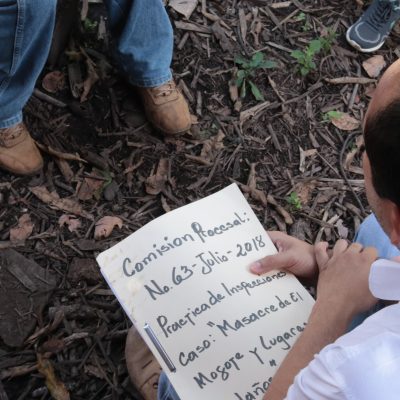 Comisión Procesal:
No. 63-Julio-2018
Practica de Inspeccione
Caso: "Masacre de El
Mozote y Lugare